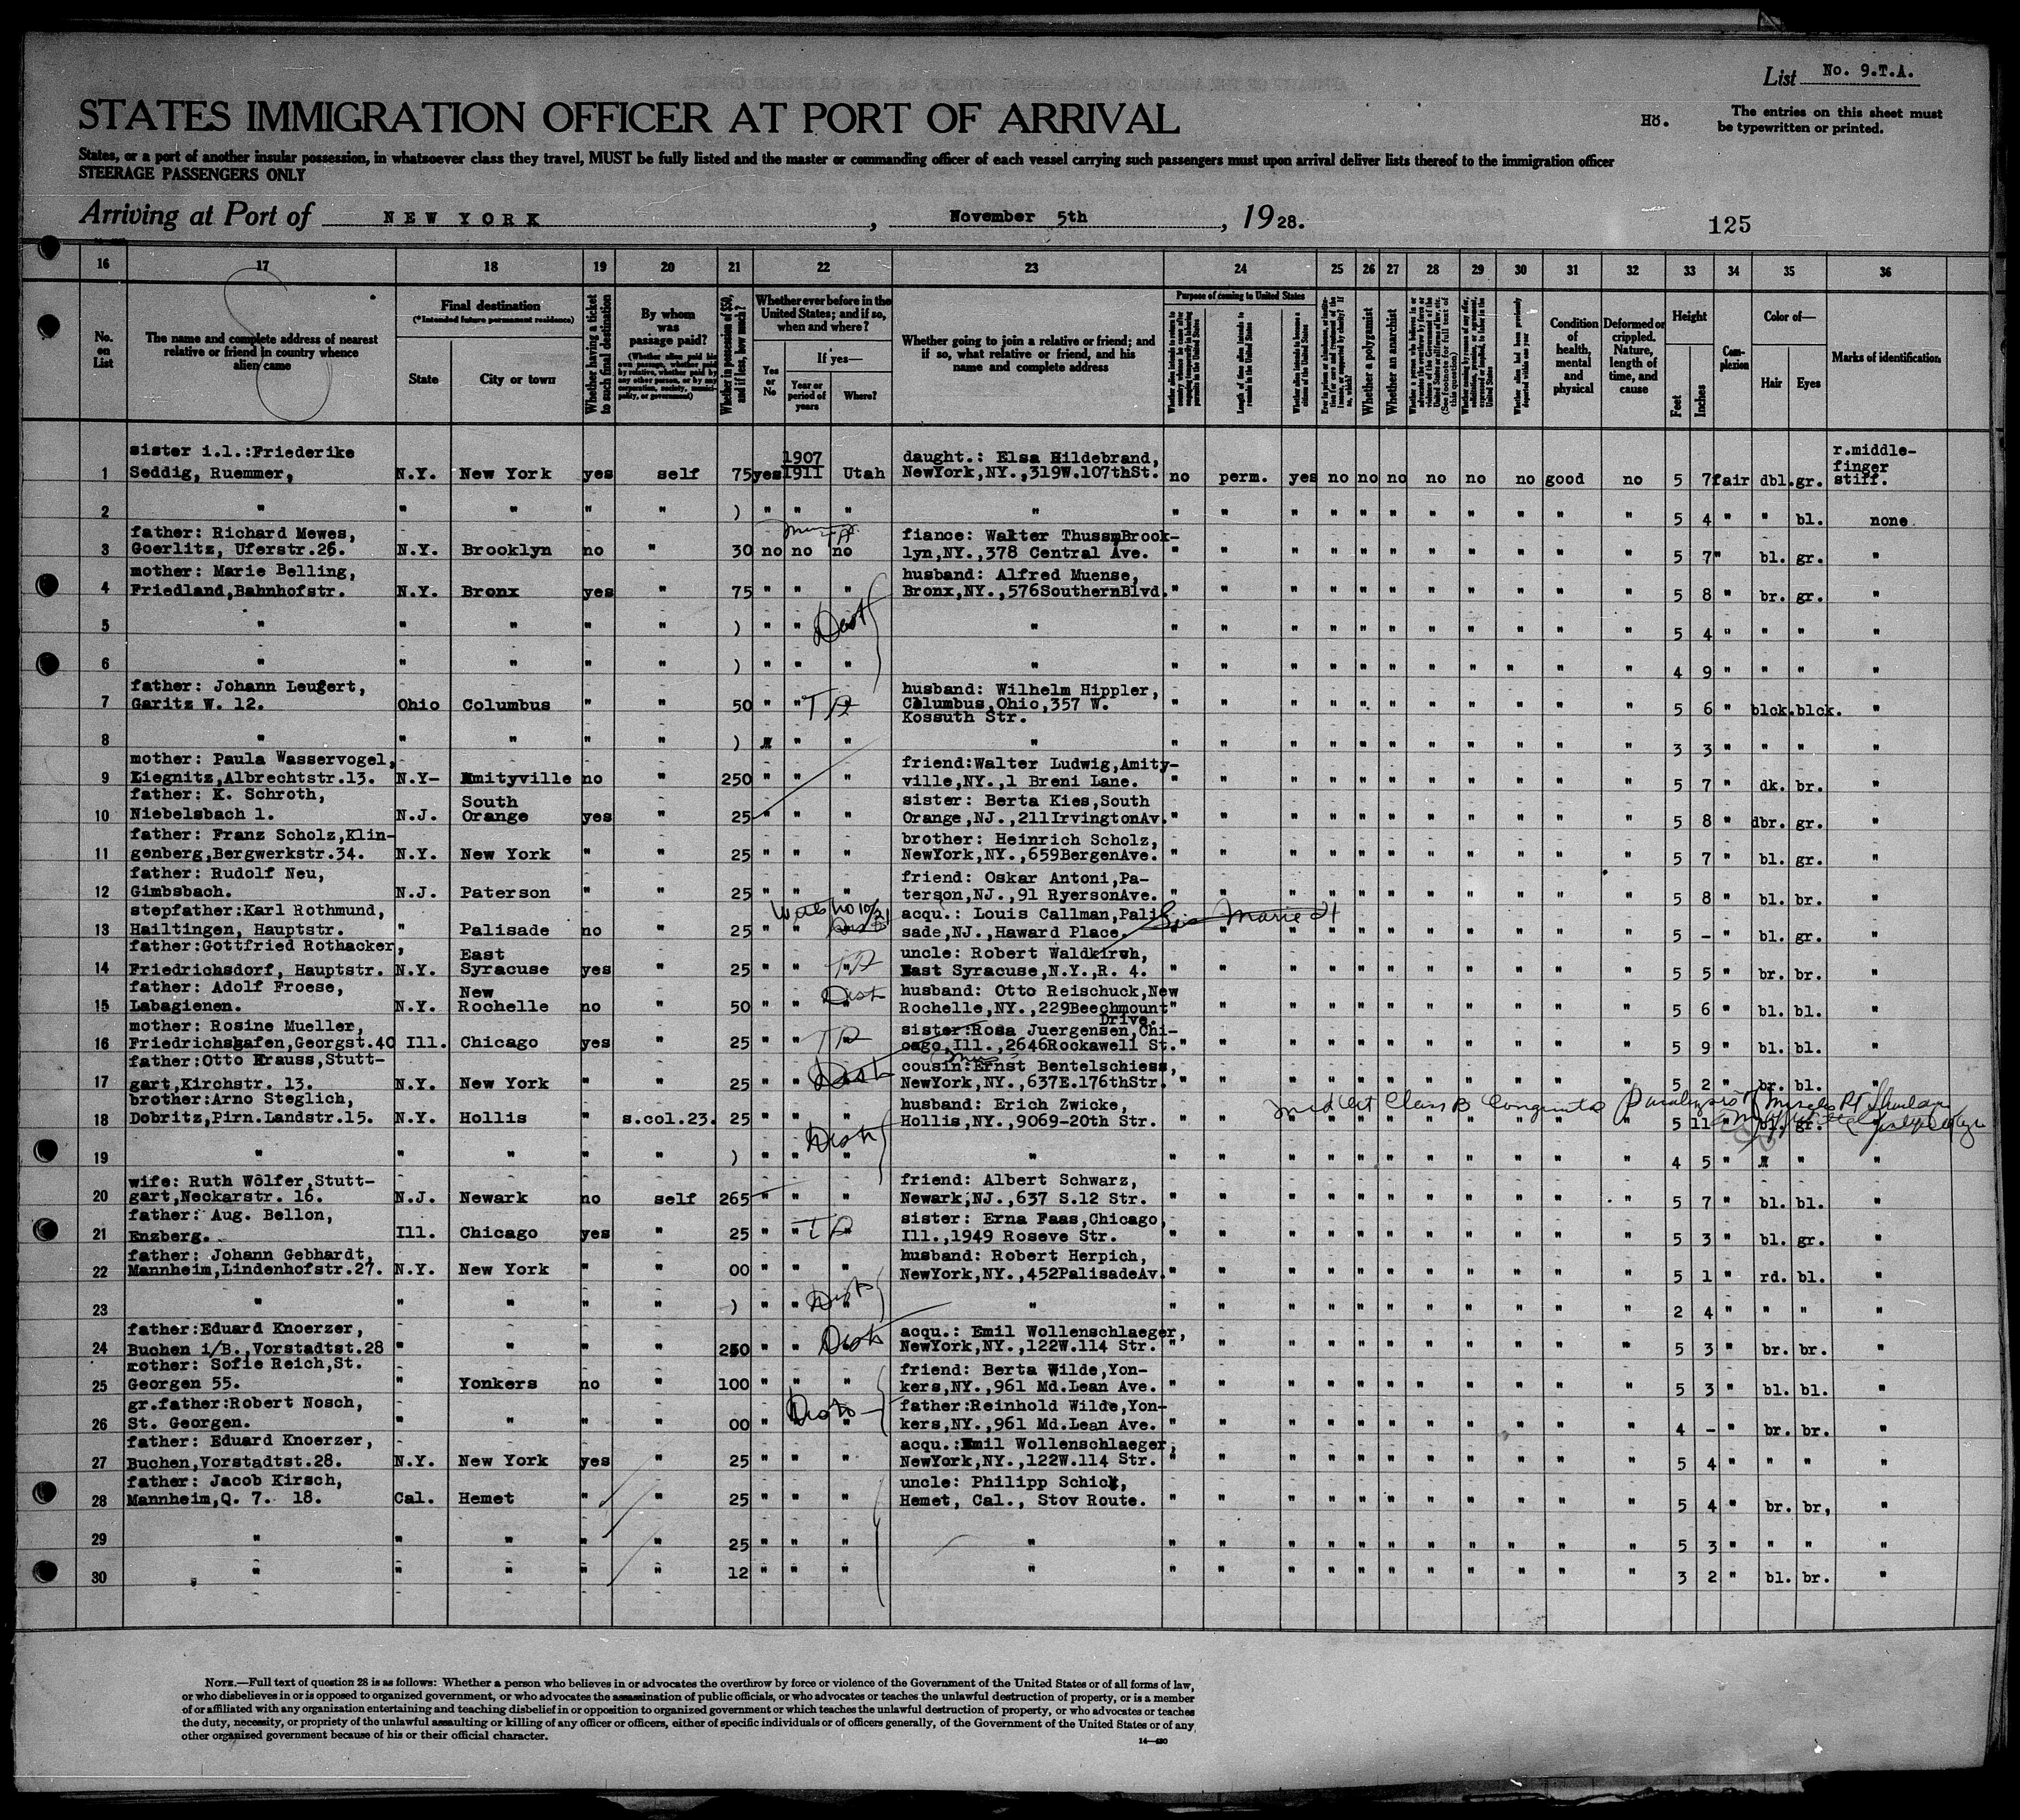 List No. 9.T.A.
STATES IMMIGRATION OFFICER AT PORT OF ARRIVAL
Hö.
The entries on this sheet must
be typewritten or printed.
States, or a port of another insular possession, in whatsoever class they travel, MUST be fully listed and the master or commanding officer of each vessel carrying such passengers must upon arrival deliver lists thereof to the immigration officer
STEERAGE PASSENGERS ONLY
Arriving at Port of NEW YORK, November 5th, 1928.
125
16 17 18 19 20 21 22 23 24 25 26 27 28 29 30 31 32 33 34 35 36
No. on List
The name and complete address of nearest relative or friend in country whence alien came
Final destination
(*Intended future permanent residence)
State
City or town
Whether having a ticket to such final destination
By whom was passage paid?
(Whether alien paid his own passage, whether paid by relative, whether paid by any other person, or by any corporation, society, municipality, or government)
Whether in possession of $50, and if less, how much?
Whether ever before in the United States; and if so, when and where?
Yes or No
If yes—
Year or period of years
Where?
Whether going to join a relative or friend; and if so, what relative or friend, and his name and complete address
Purpose of coming to United States
Length of time alien intends to remain in the United States
Whether alien intends to become a citizen of the United States
Whether a polygamist
Whether an anarchist
Condition of health, mental and physical
Deformed or crippled. Nature, length of time, and cause
Height
Feet
Inches
Complexion
Color of—
Hair
Eyes
Marks of identification
sister i.l.:Friederike 1907 daught.: Elsa Hildebrand, r.middle-
finger
1 Seddig, Ruemmer, N.Y. New York yes self 75 yes 1911 Utah NewYork,NY.,319W.107thSt. no perm. yes no no no no no no good no 5 7 fair dbl. gr. stiff.
2 " " " " " ) " " " " " " " " " " " " " " " " 5 4 " " bl. none
father: Richard Mewes, fiance: Walter Thussm Brook-
3 Goerlitz, Uferstr.26. N.Y. Brooklyn no " 30 no no no lyn,NY.,378 Central Ave. " " " " " " " " " " " 5 7 " bl. gr. "
mother: Marie Belling, husband: Alfred Muense,
4 Friedland,Bahnhofstr. N.Y. Bronx yes " 75 " " " Bronx,NY.,576SouthernBlvd. " " " " " " " " " " " 5 8 " br. gr. "
5 " " " " " ) " " " " " " " " " " " " " " " 5 4 " " " "
6 " " " " " ) " " " " " " " " " " " " " " " 4 9 " " " "
father: Johann Leufert, husband: Wilhelm Hippler,
7 Garitz W. 12. Ohio Columbus " " 50 " " " Columbus,Ohio,357 W. " " " " " " " " " " " 5 6 " blck. blck. "
Kossuth Str.
8 " " " " " ) " " " " " " " " " " " " " " " 3 3 " " " "
mother: Paula Wasservogel, friend:Walter Ludwig,Amity-
9 Liegnitz,Albrechtstr.13. N.Y- Amityville no " 250 " " " ville,NY.,1 Breni Lane. " " " " " " " " " " " 5 7 " dk. br. "
father: K. Schroth, South sister: Berta Kies,South
10 Niebelsbach 1. N.J. Orange yes " 25 " " " Orange,NJ.,211IrvingtonAv. " " " " " " " " " " " 5 8 " dbr. gr. "
father: Franz Scholz,Klin- brother: Heinrich Scholz,
11 genberg,Bergwerkstr.34. N.Y. New York " " 25 " " " NewYork,NY.,659BergenAve. " " " " " " " " " " " 5 7 " bl. gr. "
father: Rudolf Neu, friend: Oskar Antoni,Pa-
12 Gimbsbach. N.J. Paterson " " 25 " " " terson,NJ.,91 RyersonAve. " " " " " " " " " " " 5 8 " bl. br. "
stepfather:Karl Rothmund, acqu.: Louis Callman,Pali-
13 Hailtingen, Hauptstr. " Palisade no " 25 " " " sade,NJ.,Haward Place. " " " " " " " " " " " 5 - " bl. gr. "
father:Gottfried Rothacker, East uncle: Robert Waldkirch,
14 Friedrichsdorf, Hauptstr. N.Y. Syracuse yes " 25 " " " East Syracuse,N.Y.,R. 4. " " " " " " " " " " " 5 5 " br. br. "
father: Adolf Froese, New husband: Otto Reischuck,New
15 Labagienen. N.Y. Rochelle no " 50 " " " Rochelle,NY.,229Beechmount " " " " " " " " " " " 5 6 " bl. bl. "
Drive.
mother: Rosine Mueller, sister:Rosa Juergensen,Chi-
16 Friedrichshafen,Georgst.40 Ill. Chicago yes " 25 " " " cago,Ill.,2646Rockawell St. " " " " " " " " " " " 5 9 " bl. bl. "
father:Otto Krauss,Stutt- cousin:Ernst Bentelschiess,
17 gart,Kirchstr. 13. N.Y. New York " " 25 " " Dist NewYork,NY.,637E.176thStr. " " " " " " " " " " " 5 2 " br. bl. "
brother:Arno Steglich, husband: Erich Zwicke,
18 Dobritz,Pirn.Landstr.15. N.Y. Hollis " s.col.23. 25 " " " Hollis,NY.,9069-20th Str. " " " " " " " " " " " 5 11 " bl. gr. "
Med Cert Class B Congenital Paralysis of Muscles Rt Shoulder
19 " " " " " ) " " " " " " " " " " " " " " " 4 5 " " " "
wife: Ruth Wölfer,Stutt- friend: Albert Schwarz,
20 gart,Neckarstr. 16. N.J. Newark no self 265 " " " Newark,NJ.,637 S.12 Str. " " " " " " " " " " " 5 7 " bl. bl. "
father: Aug. Bellon, sister: Erna Faas,Chicago,
21 Enzberg. Ill. Chicago yes " 25 " " " Ill.,1949 Roseve Str. " " " " " " " " " " " 5 3 " bl. gr. "
father: Johann Gebhardt, husband: Robert Herpich,
22 Mannheim,Lindenhofstr.27. N.Y. New York " " 00 " " " NewYork,NY.,452PalisadeAv. " " " " " " " " " " " 5 1 " rd. bl. "
23 " " " " " ) " " " " " " " " " " " " " " " 2 4 " " " "
father:Eduard Knoerzer, acqu.: Emil Wollenschlaeger,
24 Buchen i/B.,Vorstadtst.28 " " " " 250 " " Dist NewYork,NY.,122W.114 Str. " " " " " " " " " " " 5 3 " br. br. "
mother: Sofie Reich,St. friend: Berta Wilde,Yon-
25 Georgen 55. " Yonkers no " 100 " " " kers,NY.,961 Md.Lean Ave. " " " " " " " " " " " 5 3 " bl. bl. "
gr.father:Robert Nosch, father:Reinhold Wilde,Yon-
26 St. Georgen. " " " " 00 " " " kers,NY.,961 Md.Lean Ave. " " " " " " " " " " " 4 - " br. br. "
father: Eduard Knoerzer, acqu.:Emil Wollenschlaeger,
27 Buchen,Vorstadtst.28. N.Y. New York yes " 25 " " " NewYork,NY.,122W.114 Str. " " " " " " " " " " " 5 4 " " " "
father: Jacob Kirsch, uncle: Philipp Schick,
28 Mannheim,Q. 7. 18. Cal. Hemet " " 25 " " " Hemet, Cal., Stov Route. " " " " " " " " " " " 5 4 " br. br, "
29 " " " " " 25 " " " " " " " " " " " " " " " 5 3 " " " "
30 " " " " " 12 " " " " " " " " " " " " " " " 3 2 " bl. br. "
NOTE.—Full text of question 28 is as follows: Whether a person who believes in or advocates the overthrow by force or violence of the Government of the United States or of all forms of law,
or who disbelieves in or is opposed to organized government, or who advocates the assassination of public officials, or who advocates or teaches the unlawful destruction of property, or is a member
of or affiliated with any organization entertaining and teaching disbelief in or opposition to organized government or which teaches the unlawful destruction of property, or who advocates or teaches
the duty, necessity, or propriety of the unlawful assaulting or killing of any officer or officers, either of specific individuals or of officers generally, of the Government of the United States or of any
other organized government because of his or their official character.
14—430